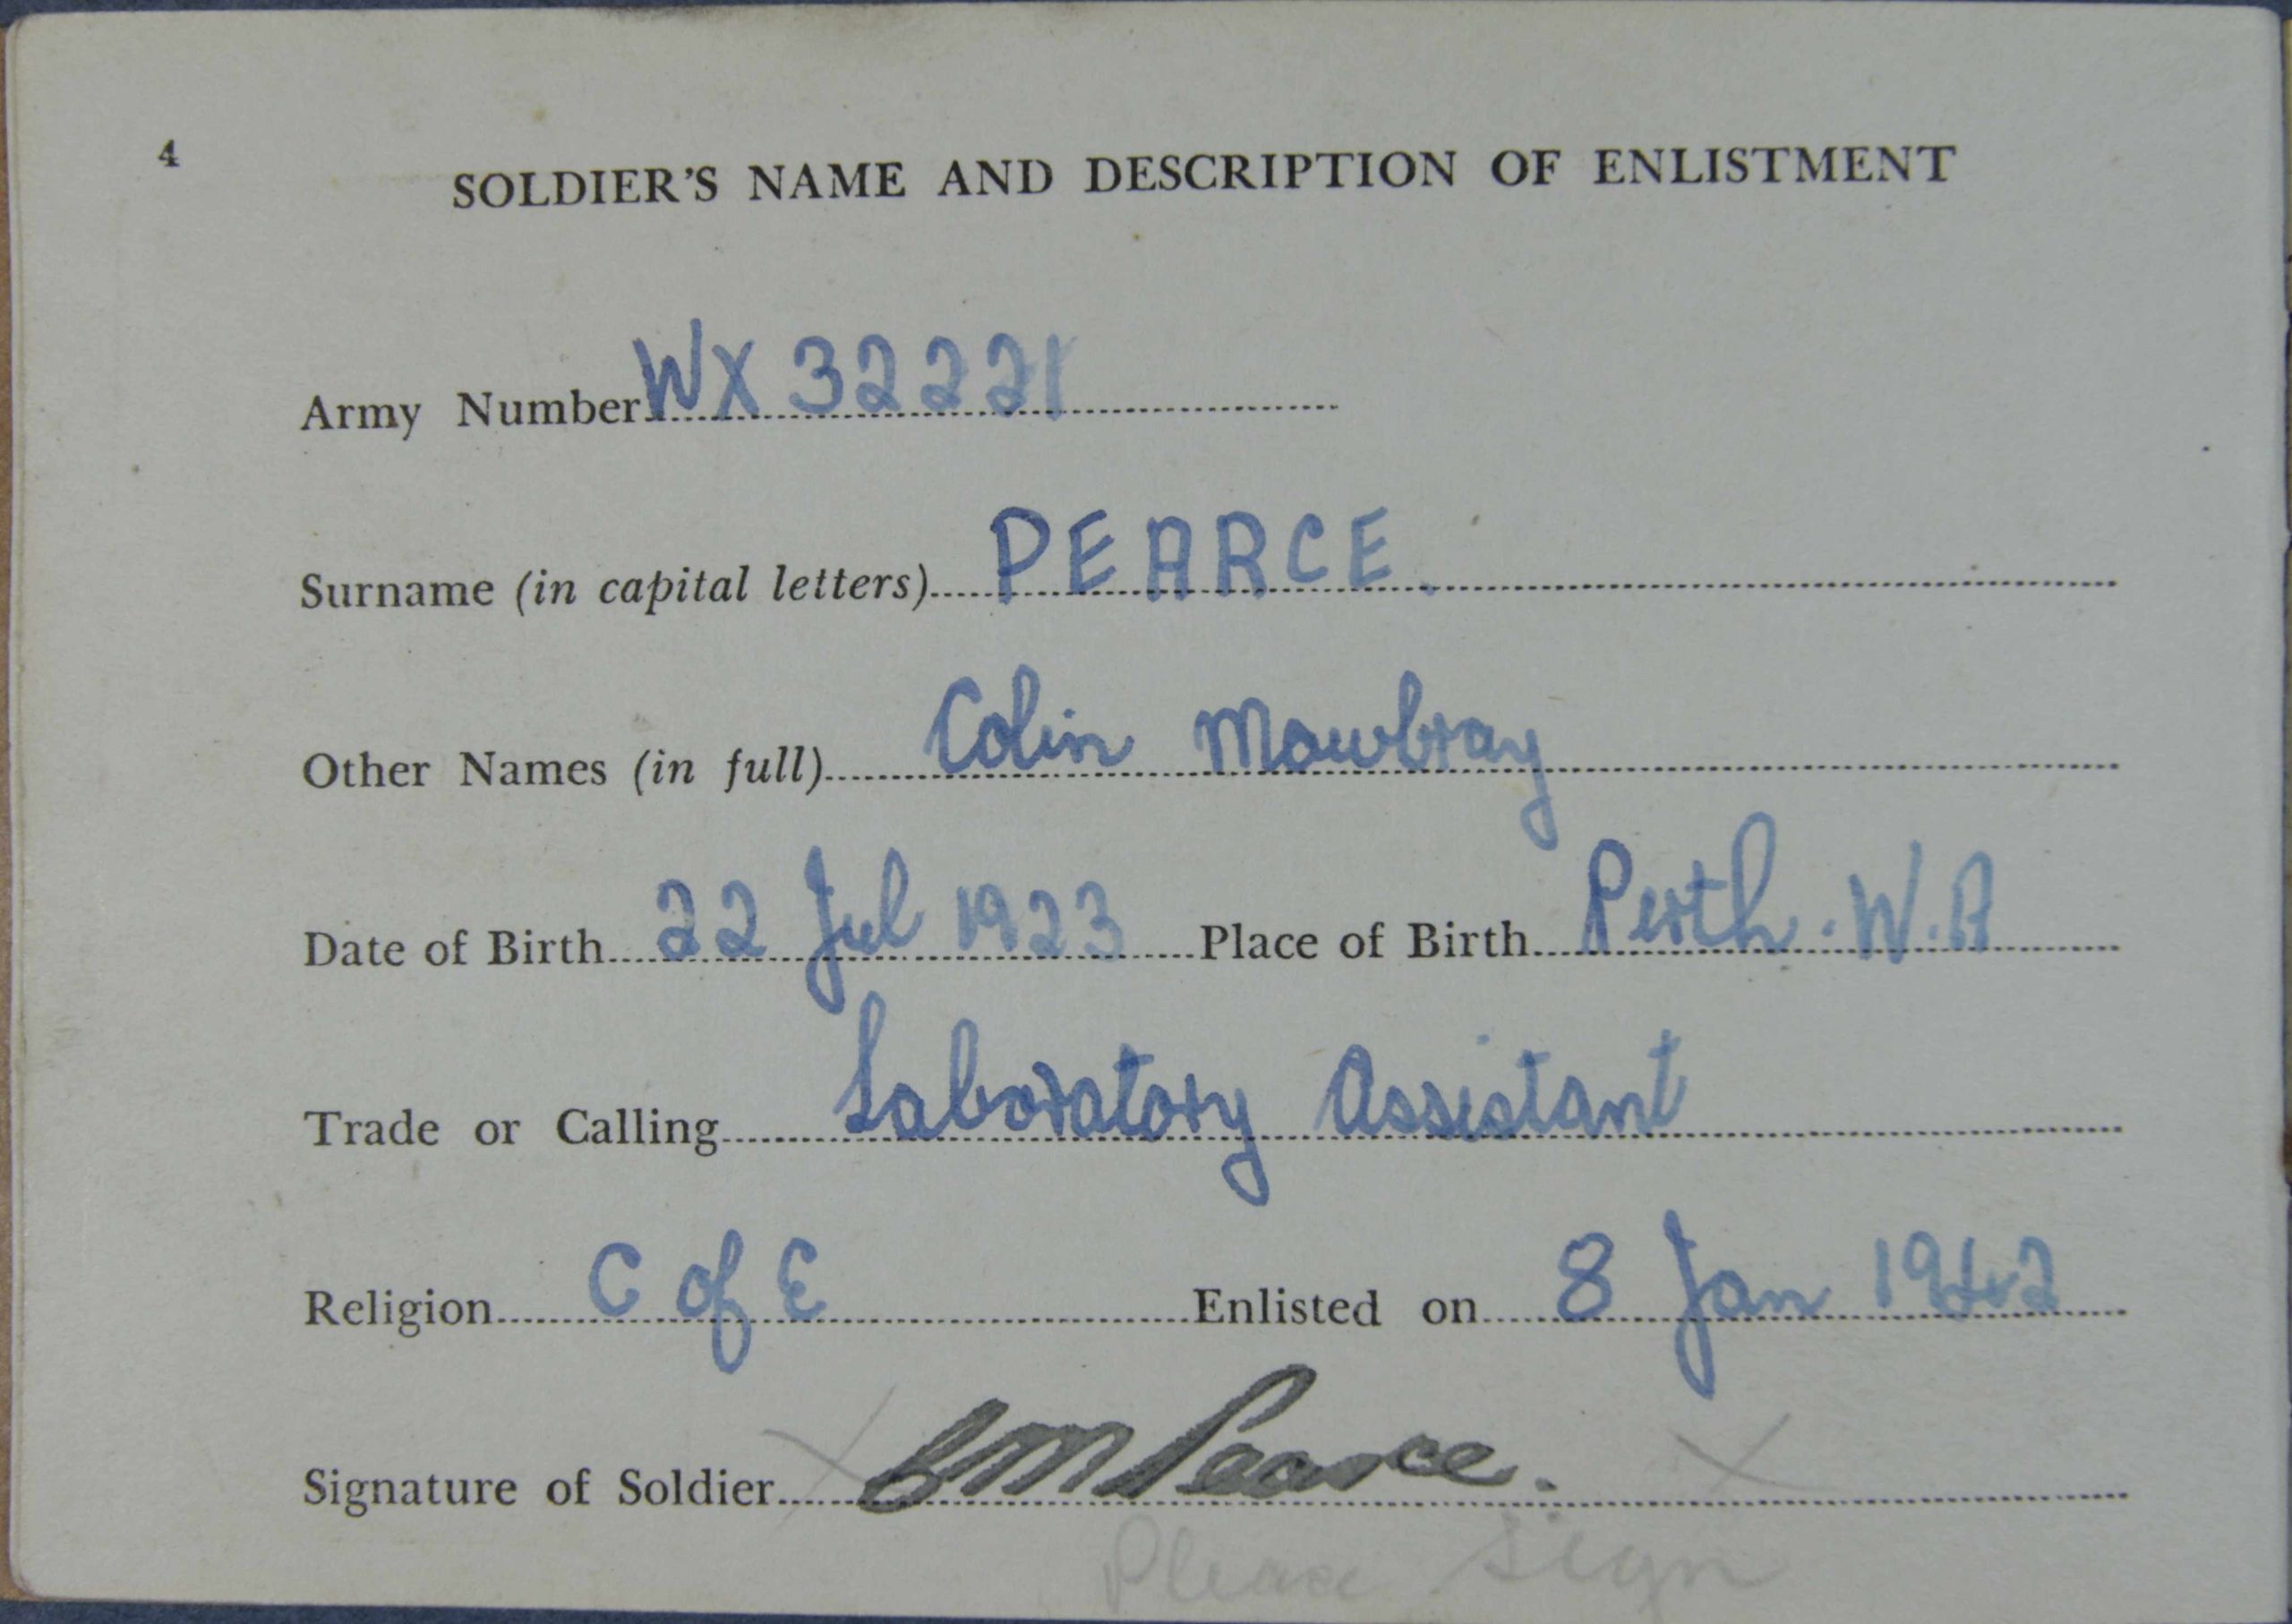 4
SOLDIER'S NAME AND DESCRIPTION OF ENLISTMENT
Army Number WX 32221
Surname (in capital letters) PEARCE.
Other Names (in full) Colin Mowbray
Date of Birth 22 Jul 1923 Place of Birth Perth. W.A
Trade or Calling Laboratory Assistant
Religion C of E Enlisted on 8 Jan 1942
Signature of Soldier X CM Pearce. X
Please sign